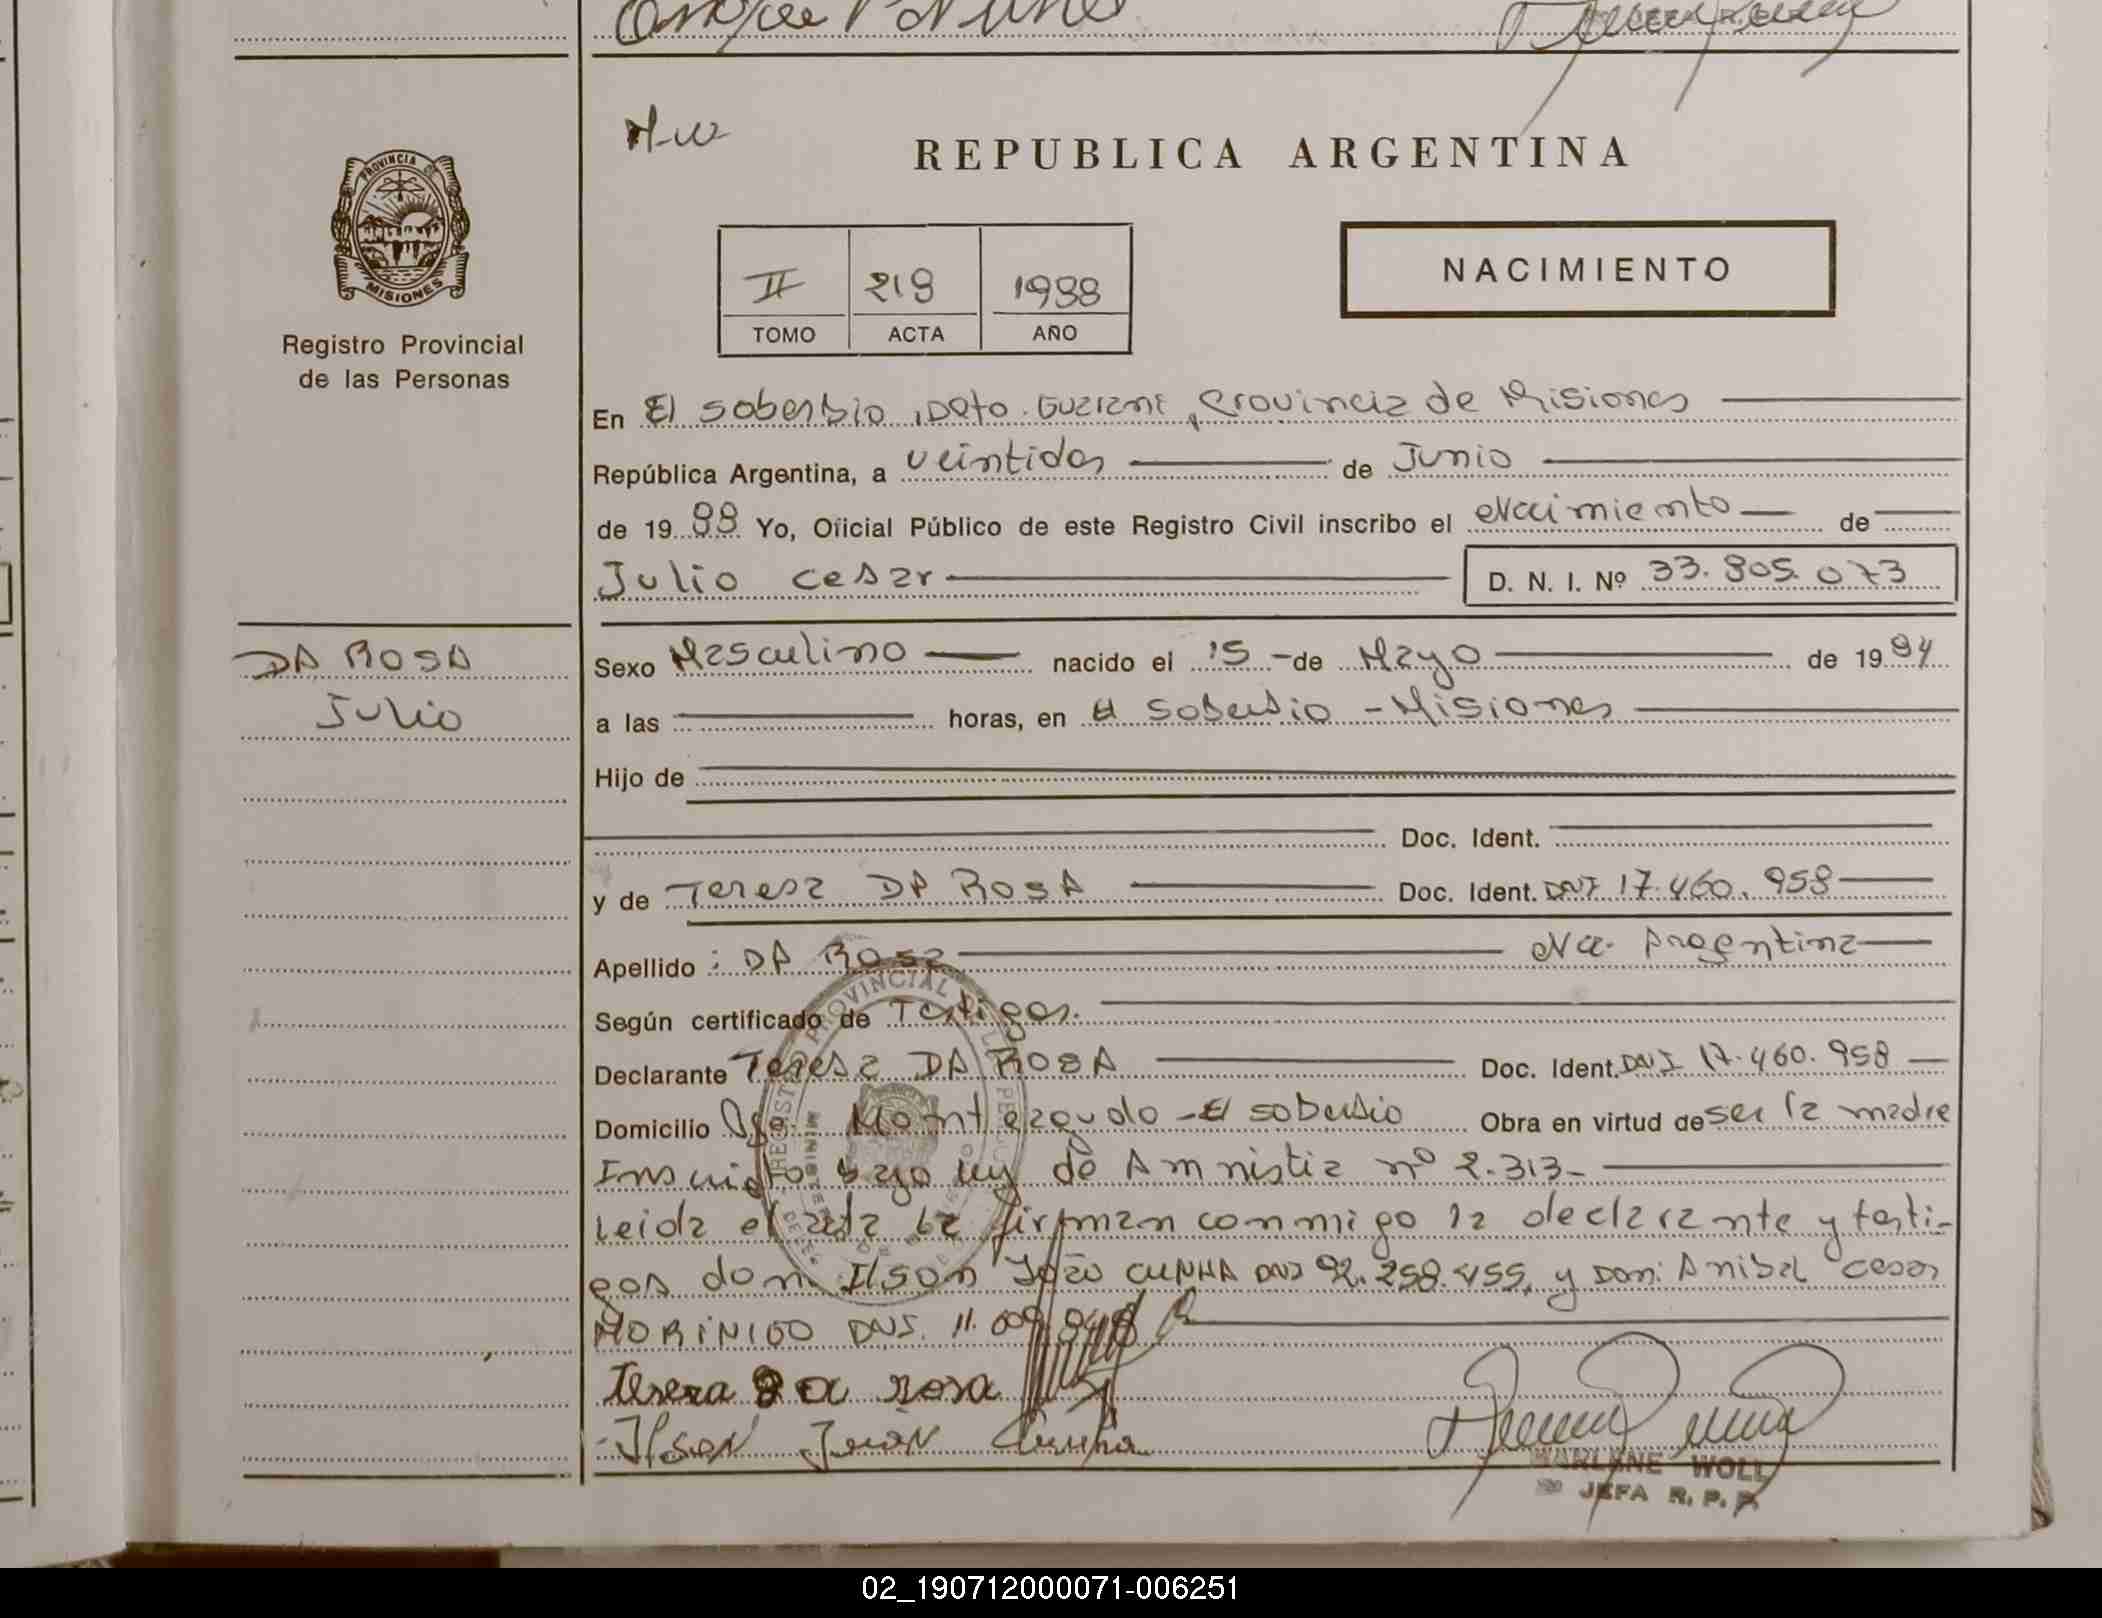 M-W
REPUBLICA ARGENTINA
PROVINCIA DE
MISIONES
Registro Provincial
de las Personas
NACIMIENTO
II 219 1988
TOMO ACTA AÑO
En El soberbio, Dpto. Guarani, Provincia de Misiones
República Argentina, a veintidos de Junio
de 1988 Yo, Oficial Público de este Registro Civil inscribo el Nacimiento de
Julio cesar D. N. I. Nº 33.905.073
DA ROSA
Julio
Sexo Masculino nacido el 15 - de Mayo de 1984
a las horas, en El Soberbio - Misiones
Hijo de
Doc. Ident.
y de Teresa DA ROSA Doc. Ident. DNI 17.460.958
Apellido : DA Rosa Na. Argentina
Según certificado de Testigos.
Declarante Teresa DA ROSA Doc. Ident. DNI 17.460.958
Domicilio Monteagudo - El soberbio Obra en virtud de ser la madre
Inscripto bajo ley de Amnistia nº 2.313-
Leida el acta la firman conmigo la declarante y testi-
gos don Ilson João CUNHA DNI 92.258.455, y Don: Anibal cesar
MORINIGO DNI. 11.009.948
Teresa da rosa
Ilson João Cunha
MARLENE WOLL
JEFA R. P. P.
02_190712000071-006251